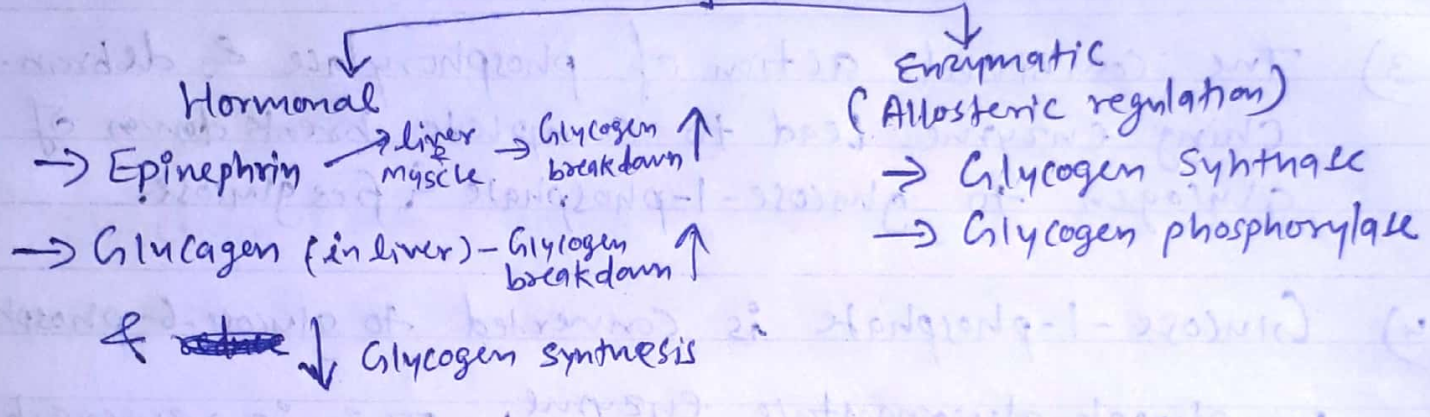 Hormonal
→ Epinephrin → liver & muscle. → Glycogen breakdown ↑
→ Glucagen (in liver) - Glycogen breakdown ↑
& ↓ Glycogen synthesis
Enzymatic
(Allosteric regulation)
→ Glycogen Synthase
→ Glycogen phosphorylase